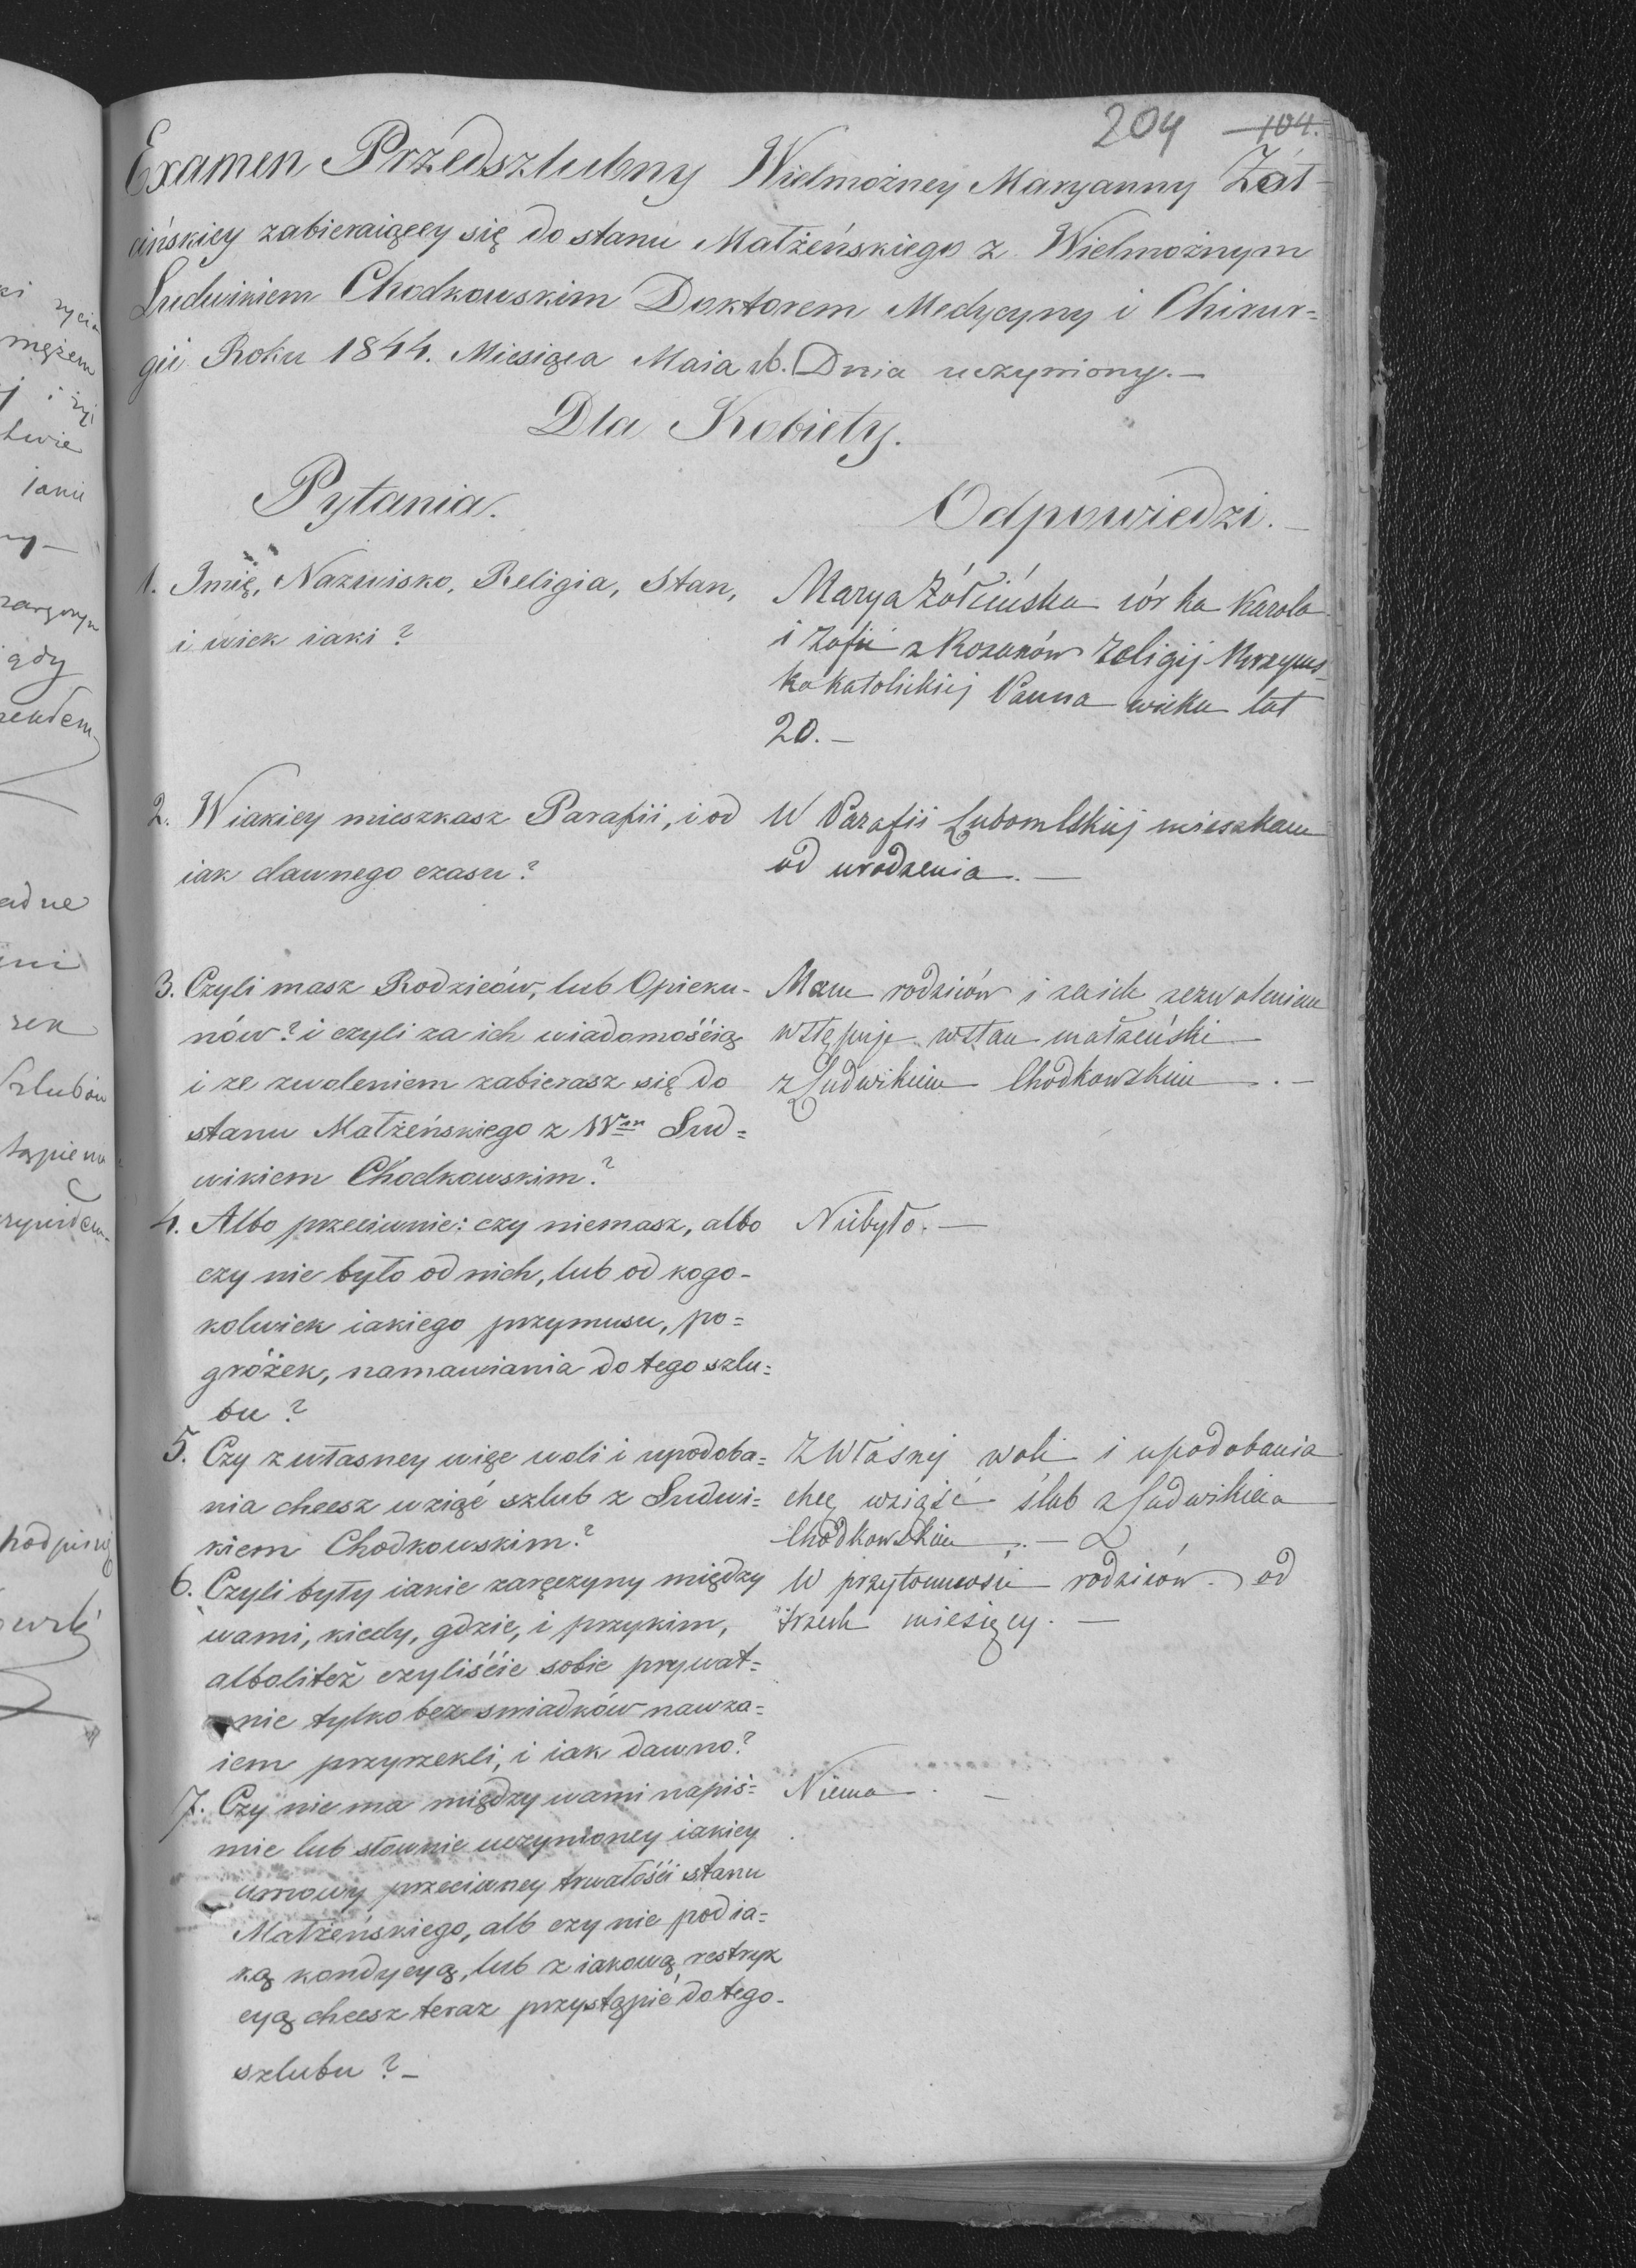 204 104.
Examen Przedszlubny Wielmożney Maryanny Żół-
cińskiey zabieraiącey się do stanu Małżeńskiego z Wielmożnym
Ludwikiem Chodkowskim Doktorem Medycyny i Chirur=
gii Roku 1844. Miesiąca Maia 16. Dnia uczyniony.—
Dla Kobiety.
Pytania. Odpowiedzi.—
1. Imię, Nazwisko, Religia, Stan,
i wiek iaki?
Marya Żółcińska córka Karola
i Zofii z Religij Rzyms-
kokatolickiej Panna wieku lat
20.—
2. W iakiey mieszkasz Parafii, i od
iak dawnego czasu?
W Parafii Lubomlskiej mieszkam
od urodzenia.—
3. Czyli masz Rodziców, lub Opieku-
nów? i czyli za ich wiadomośćią
i ze zwoleniem zabierasz się do
stanu Małżeńskiego z Wm Lud=
wikiem Chodkowskim?
Mam rodziców i za ich zezwoleniem
wstępuje w stan małżeński
z Ludwikiem Chodkowskim.—
4. Albo przeciwnie: czy niemasz, albo
czy nie było od nich, lub od kogo-
kolwiek iakiego przymusu, po=
gróżek, namawiania do tego szlu=
bu?
Niebyło.—
5. Czy z własney więc woli i upodoba=
nia chcesz wziąć szlub z Ludwi=
kiem Chodkowskim?
Z własnej woli i upodobania
chcę wziąść ślub z Ludwikiem
Chodkowskim.—
6. Czyli były iakie zaręczyny między
wami, kiedy, gdzie, i przykim,
albolitéż czyliśćie sobie prywat=
nie tylko bez swiadków nawza=
iem przyrzekli, i iak dawno?
W przytomności rodziców od
trzech miesięcy.—
7. Czy nie ma między wami napiś=
mie lub słownie uczynioney iakiey
umowy przeciwney trwałośći stanu
Małżeńskiego, alb czy nie pod ia=
ką kondycyą, lub z iakową restryk
cyą chcesz teraz przystąpić do tego-
szlubu?—
Niema.—